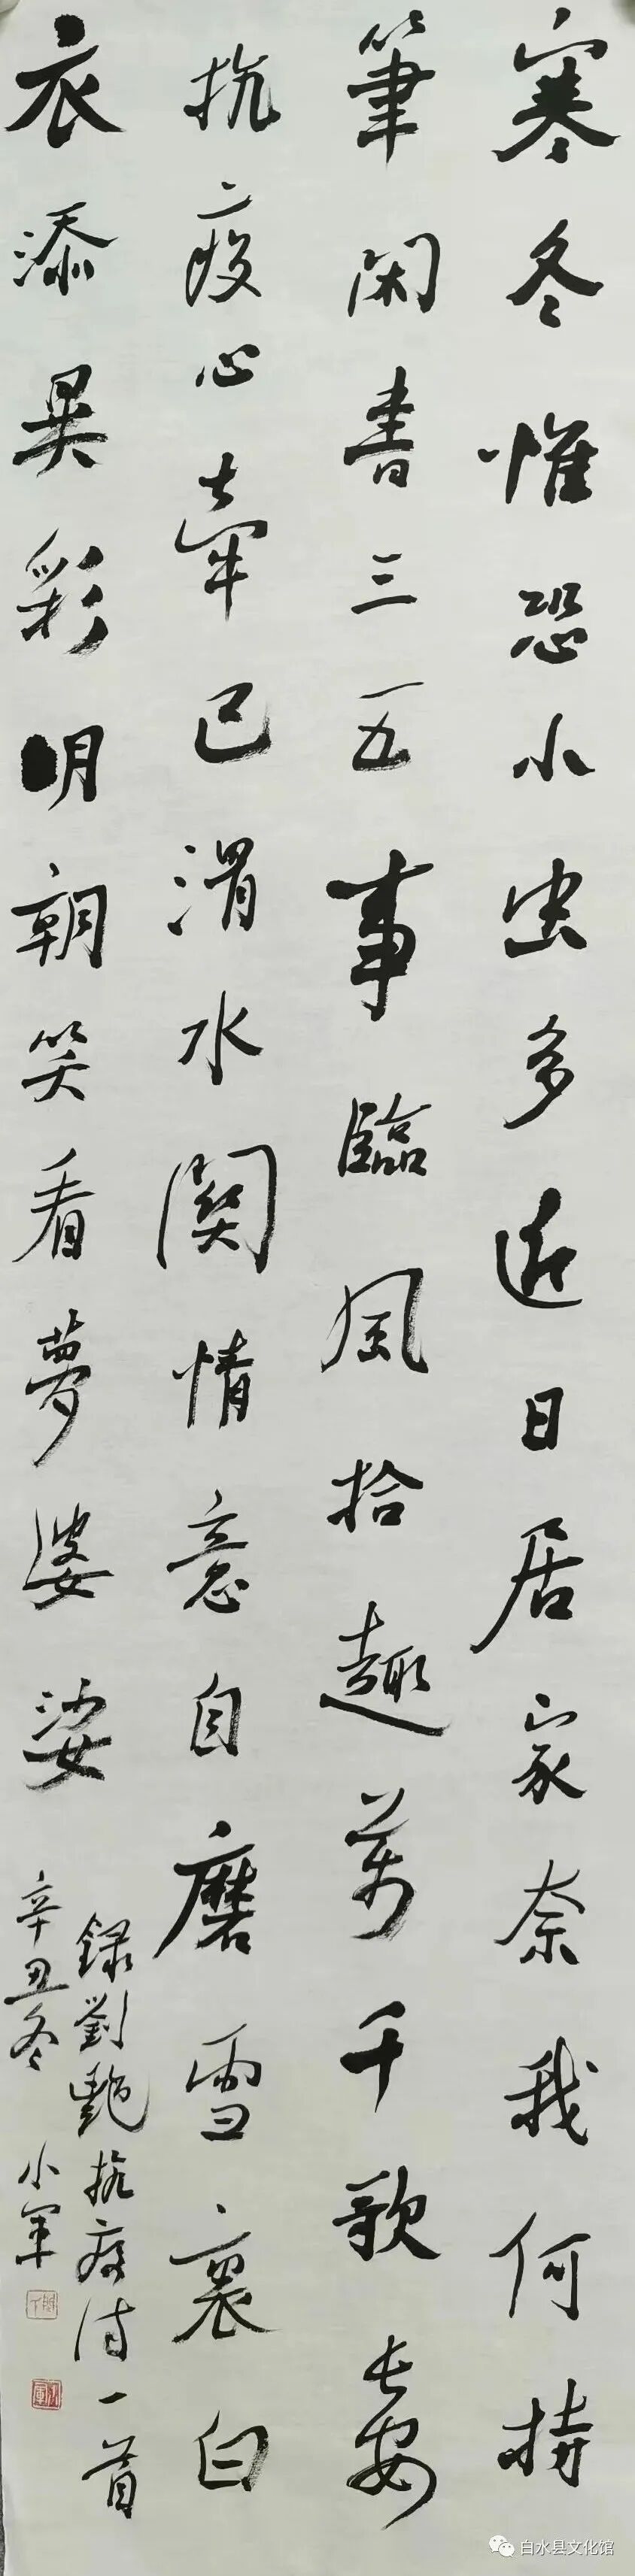 寒冬惟恐小虫多近日居家奈我何持
筆閑書三五事臨風拾趣萬千歌長安
抗疫心牽已渭水關情意自磨雪裹白
衣添異彩明朝笑看夢婆娑
錄劉艷抗疫诗一首
辛丑冬 小軍
白水县文化馆